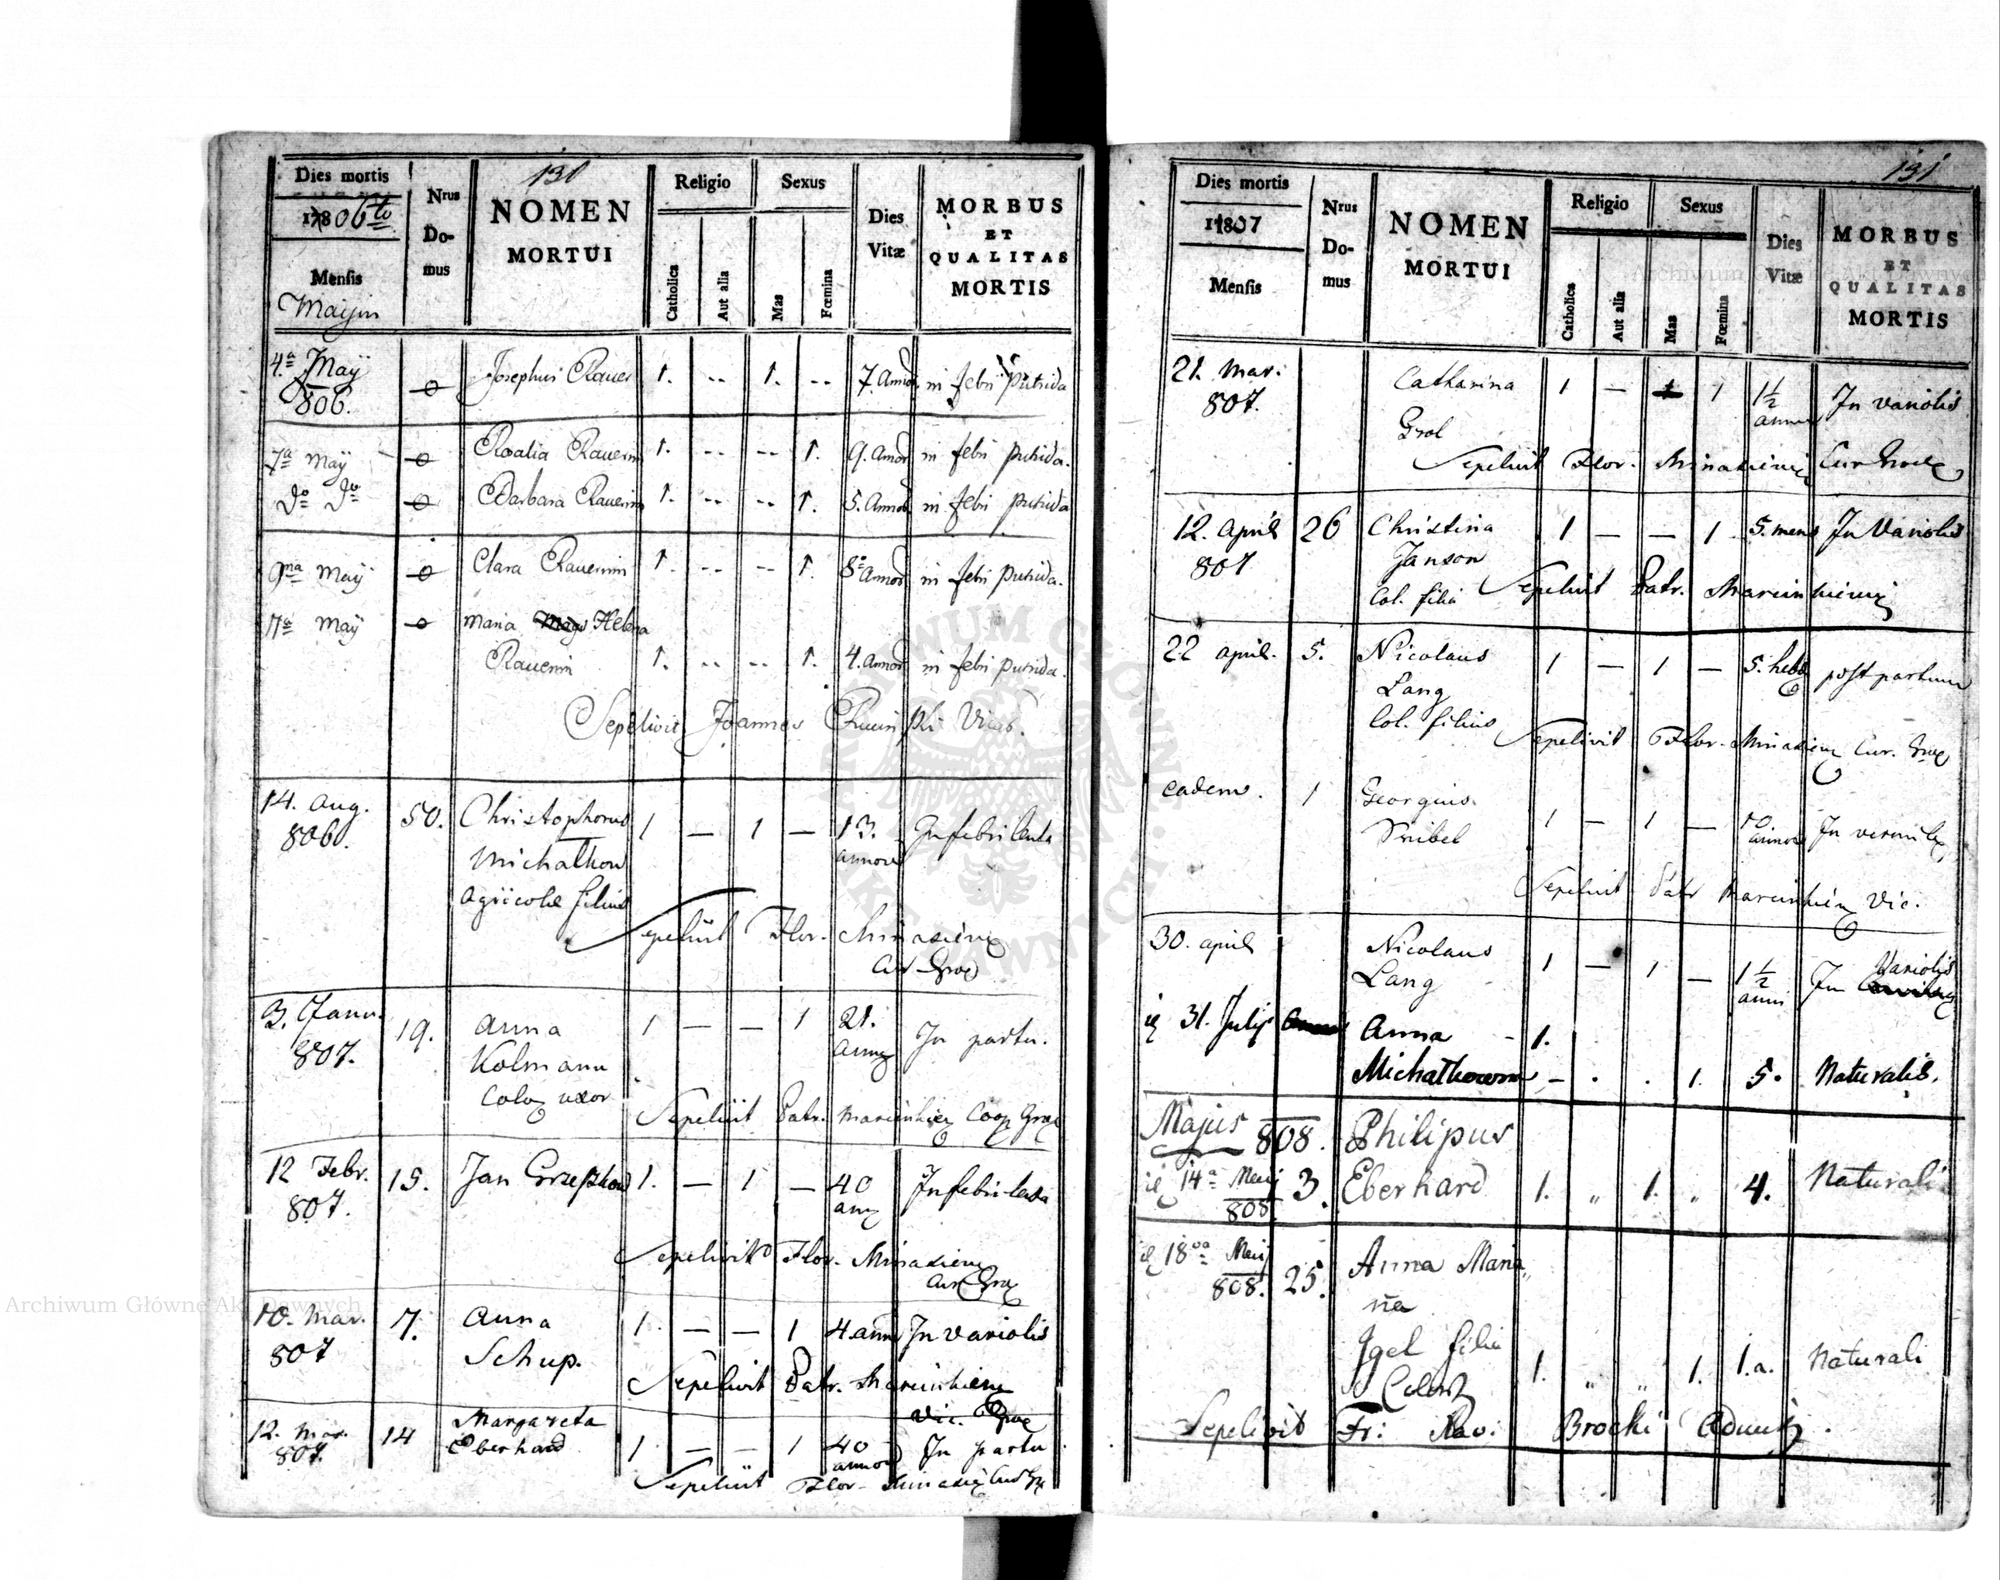 130
Dies mortis
1806to
Mensis
Mayin
Nrus Domus
NOMEN
MORTUI
Religio
Catholica
Aut alia
Sexus
Mas
Fœmina
Dies Vitæ
MORBUS
ET
QUALITAS
MORTIS
4a May 806. Josephus Rauer 1. -- 1. -- 7. Annor in febri putrida
7a May Rosalia Rauerin 1. -- -- 1. 9. Annor in febri putrida.
do do Barbara Rauerin 1. -- -- 1. 5. Annor in febri putrida
9na May Clara Rauerin 1. -- -- 1. 8 Annor in febri putrida.
11a May Maria Helena
Rauerin 1. -- -- 1. 4. Annor in febri putrida.
Sepelivit Joannes
14. Aug. 806. 50. Christophorus 1 — 1 — 13. annor In febri lenta
Michalkow
Agricolæ filius
Sepeliit Flor. Minasiewicz
Cur. Groc
3. Janu. 807. 19. Anna 1 — — 1 21. In partu.
Kolmann
uxor
Sepeliit Patr. Marcinkiew Coop
12 Febr. 807. 15. Jan 1. — 1 — 40 In febri lenta
Sepelivit Flor. Minasiew
Cur
10. Mar. 807 7. Anna 1. — — 1 4. ann In variolis
Schup.
Sepelivit Patr. Marcinkiew
Vic.
12. Mar. 807. 14 Margareta 1 — — 1 40 annor In partu
Eberhard
Sepeliit Flor. Minasiew
131
Dies mortis
1807
Mensis
Nrus Domus
NOMEN
MORTUI
Religio
Catholica
Aut alia
Sexus
Mas
Fœmina
Dies Vitæ
MORBUS
ET
QUALITAS
MORTIS
21. Mar. 807. Catharina 1 — 1 1 1/2 In variolis
Grol
Sepeliit Flor. Minasiewicz Cur
12. April 807 26 Christina 1 — — 1 5. mens In Variolis
Janson
Col. filia Sepeliit Patr. Marcinkiewicz
22 april. 5. Nicolaus 1 — 1 — 5. hebd post partum
Lang
Col. filius
Sepelivit Flor. Minasiew Cur.
eadem. 1 Georgius 1 — 1 — 10 annor In
Sepeliit Patr Marcinkiew Vic.
30. april Nicolaus 1 — 1 — 1 1/2 anni In Variolis
Lang
31. Julii Anna 1.
Michalkowna — . . 1. 5. Naturalis.
Majus 808. Philipus
14a Maij 808 3. Eberhard 1. " 1. " 4. Naturali
18va Maij 808. 25. Anna Maria
Igel filia 1. " " 1. 1.a. Naturali
Sepelivit Fr: Brocki
Archiwum Główne Akt Dawnych
Archiwum Główne Akt Dawnych
ARCHIWUM GŁÓWNE AKT DAWNYCH